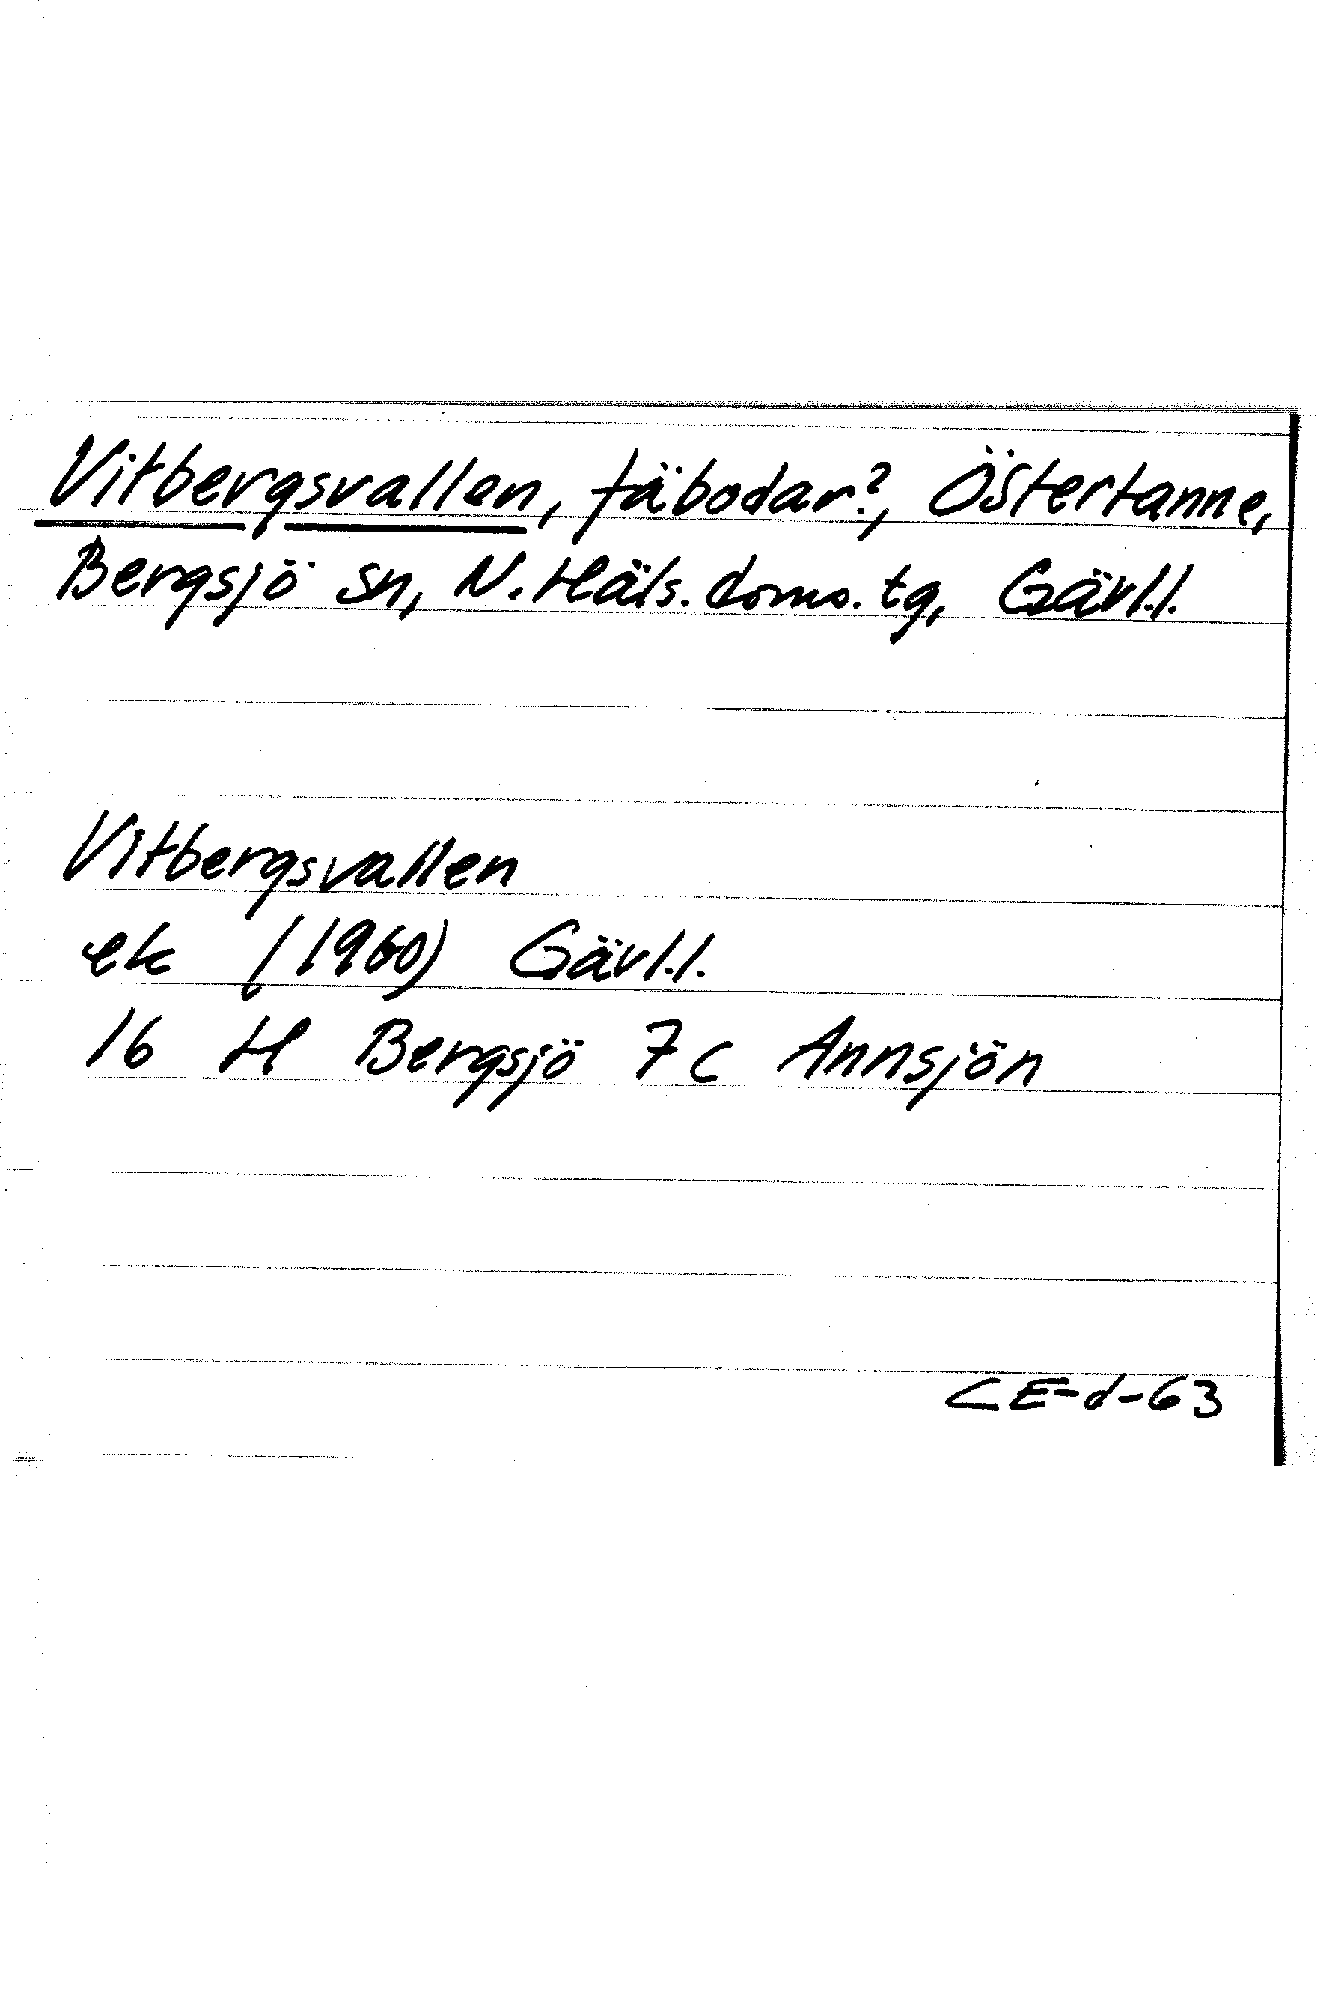 Vitbergsvallen, fäbodar?, Östertanne,
Bergsjö sn, N. Häls. doms. tg, Gävl.l.
Vitbergsvallen
ek (1960) Gävl.l.
16 H Bergsjö 7c Annsjön
CE-d-63